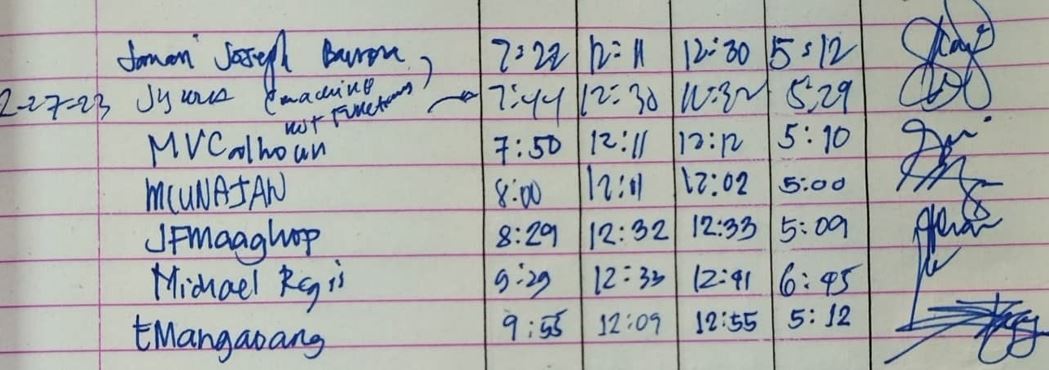 Joseph 7:22 12:11 12:30 5:12
2-27-23 (machine not functional) 7:44 12:30 12:32 5:29
MVCalhoun 7:50 12:11 12:12 5:10
MCUNAJAN 8:00 12:01 12:02 5:00
JFMaaghop 8:29 12:32 12:33 5:09
Michael Regis 9:29 12:33 12:41 6:45
tMangaoang 9:55 12:09 12:55 5:12